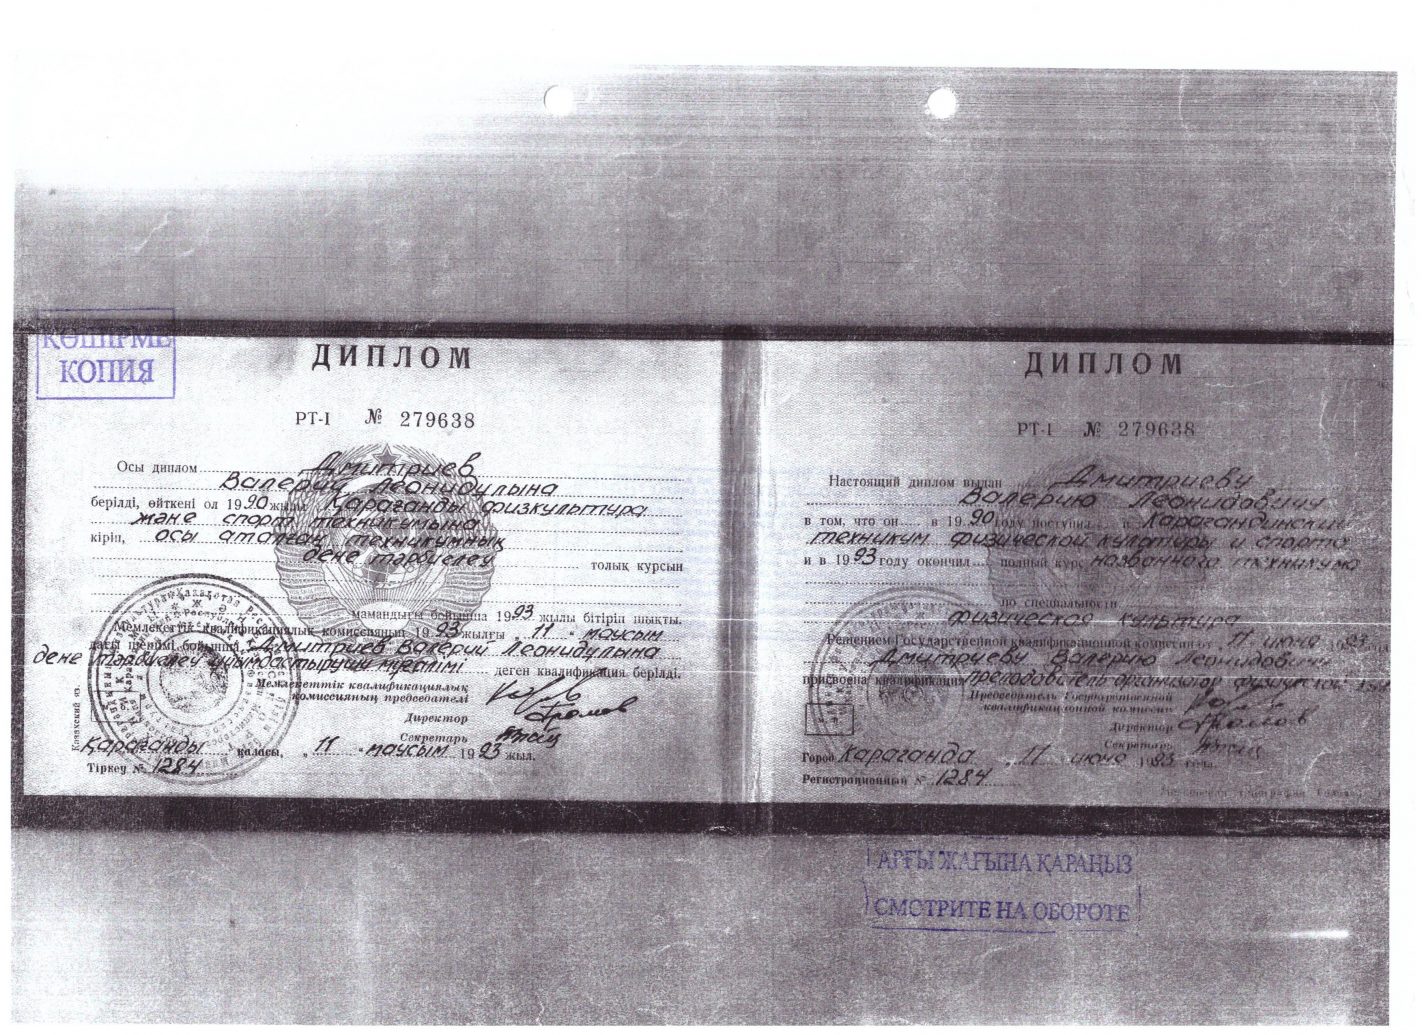 КӨШІРМЕ
КОПИЯ
ДИПЛОМ
РТ-I № 279638
Осы диплом Дмитриев
Валерий Леонидұлына
берілді, өйткені ол 1990 жылы Қарағанды физкультура
және спорт техникумына
кіріп, осы аталған техникумның
дене тәрбиелеу толық курсын
мамандығы бойынша 1993 жылы бітіріп шықты.
Мемлекеттік квалификациялық комиссияның 1993 жылғы „11" маусым
дағы шешімі бойынша Дмитриев Валерий Леонидұлына
дене тәрбиелеу ұйымдастырушы мұғалімі деген квалификация берілді.
Мемлекеттік квалификациялық
комиссияның председателі
Директор
Секретарь
Қарағанды қаласы, „11" маусым 1993 жыл.
Тіркеу № 1284
Казахский яз.
ДИПЛОМ
РТ-I № 279638
Настоящий диплом выдан Дмитриеву
Валерию Леонидовичу
в том, что он в 1990 году поступил в Карагандинский
техникум физической культуры и спорта
и в 1993 году окончил полный курс названного техникума
по специальности
физическая культура
Решением Государственной квалификационной комиссии от 11 июня 1993
Дмитриеву Валерию Леонидовичу
присвоена квалификация преподаватель организатор
Председатель Государственной
квалификационной комиссии
Директор
Секретарь
Город Караганда 11 июня 1993 года.
Регистрационный № 1284
АРҒЫ ЖАҒЫНА ҚАРАҢЫЗ
СМОТРИТЕ НА ОБОРОТЕ